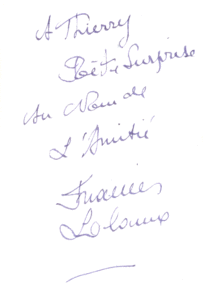 A Thierry
Poète Surprise
Au Nom de
L'Amitié
Francis
Lalanne